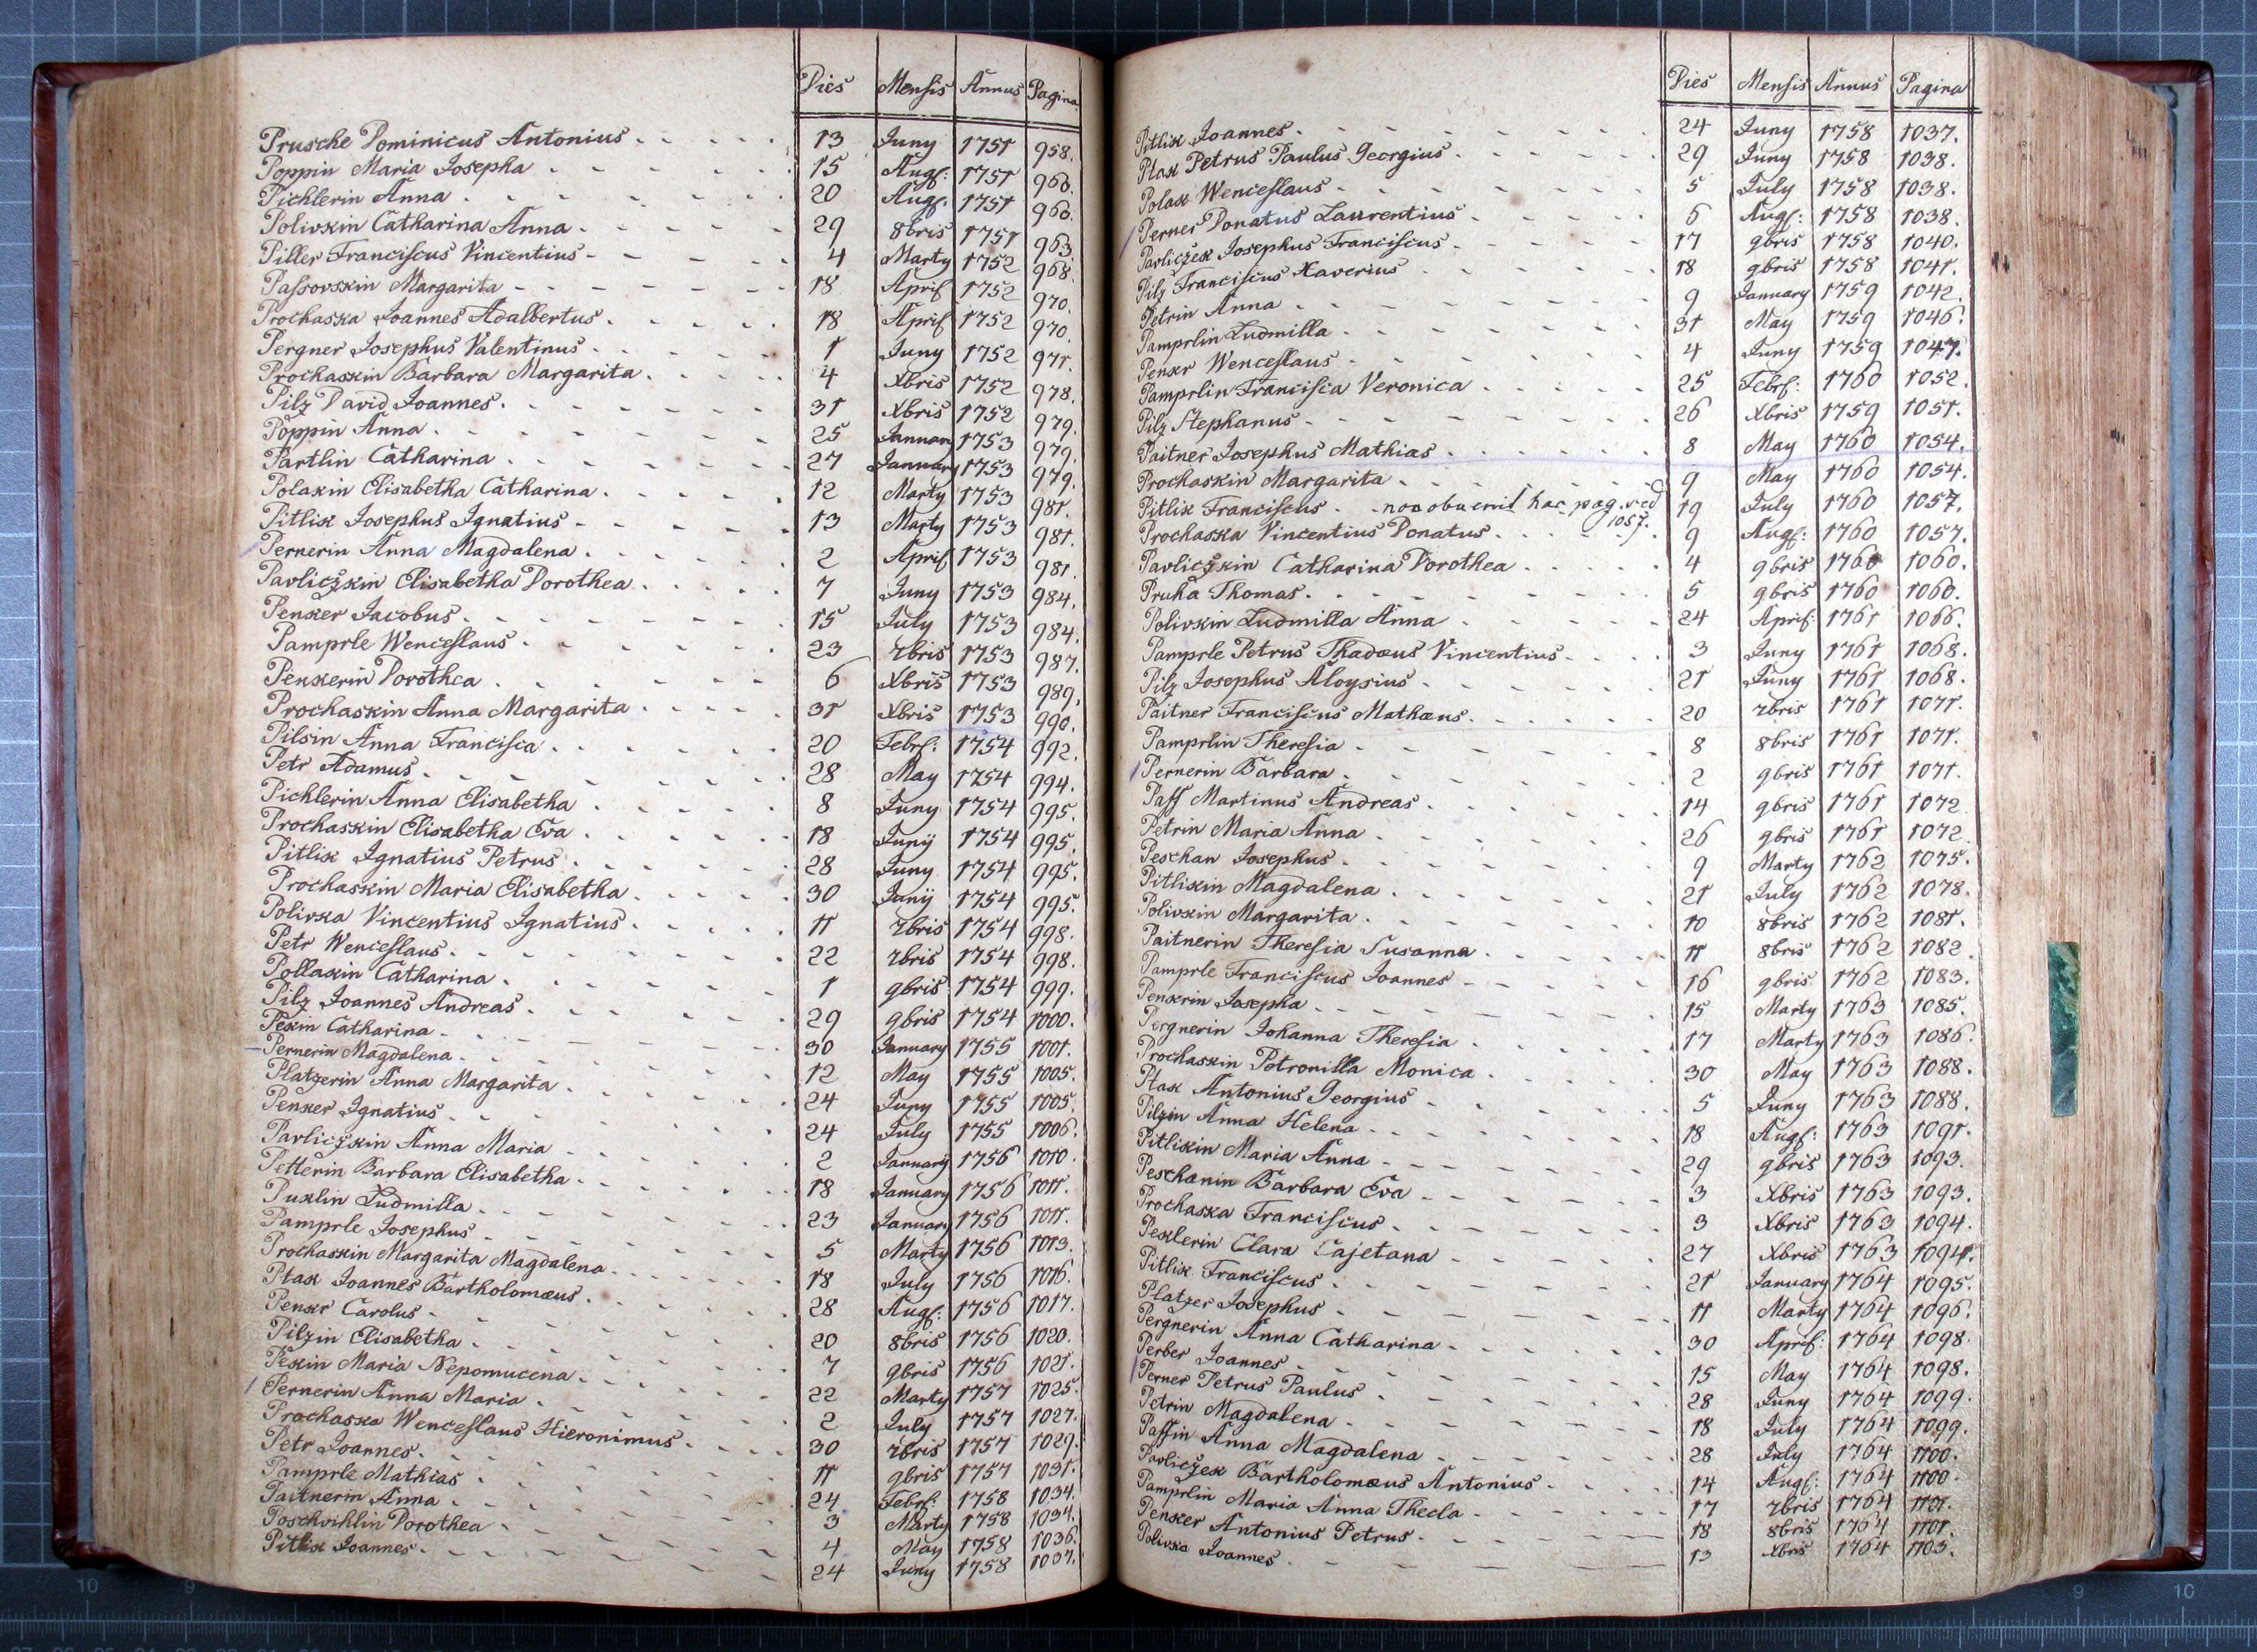 Dies Mensis Annus Pagina
Prusche Dominicus Antonius 13 Juny 1751 958.
Poppin Maria Josepha 15 Aug: 1751 960.
Pichlerin Anna 20 Aug: 1751 960.
Polivkin Catharina Anna 29 8bris 1751 963.
Piller Franciscus Vincentius 4 Marty 1752 968.
Passovskin Margarita 18 April 1752 970.
Prochaska Joannes Adalbertus 18 April 1752 970.
Pergner Josephus Valentinus 1 Juny 1752 971.
Prochaskin Barbara Margarita 4 Xbris 1752 978.
Pilz David Joannes 31 Xbris 1752 979.
Poppin Anna 25 January 1753 979.
Partlin Catharina 27 January 1753 979.
Polakin Elisabetha Catharina 12 Marty 1753 981.
Pitlik Josephus Ignatius 13 Marty 1753 981.
Pernerin Anna Magdalena 2 April 1753 981.
Pavliczkin Elisabetha Dorothea 7 Juny 1753 984.
Penker Jacobus 15 July 1753 984.
Pamprle Wenceslaus 23 7bris 1753 987.
Penkerin Dorothea 6 Xbris 1753 989.
Prochaskin Anna Margarita 31 Xbris 1753 990.
Pilsin Anna Francisca 20 Febr: 1754 992.
Petr Adamus 28 May 1754 994.
Pichlerin Anna Elisabetha 8 Juny 1754 995.
Prochaskin Elisabetha Eva 18 Juny 1754 995.
Pitlik Ignatius Petrus 28 Juny 1754 995.
Prochaskin Maria Elisabetha 30 Juny 1754 995.
Polivka Vincentius Ignatius 11 7bris 1754 998.
Petr Wenceslaus 22 7bris 1754 998.
Pollakin Catharina 1 9bris 1754 999.
Pilz Joannes Andreas 29 9bris 1754 1000.
Pekin Catharina 30 January 1755 1001.
Pernerin Magdalena 12 May 1755 1005.
Platzerin Anna Margarita 24 Juny 1755 1005.
Penker Ignatius 24 July 1755 1006.
Pavliczkin Anna Maria 2 January 1756 1010.
Petlerin Barbara Elisabetha 18 January 1756 1011.
Puklin Ludmilla 23 January 1756 1011.
Pamprle Josephus 5 Marty 1756 1013.
Prochaskin Margarita Magdalena 18 July 1756 1016.
Ptak Joannes Bartholomæus 28 Aug: 1756 1017.
Penkr Carolus 20 8bris 1756 1020.
Pilzin Elisabetha 7 9bris 1756 1021.
Pekin Maria Nepomucena 22 Marty 1757 1025.
Pernerin Anna Maria 2 July 1757 1027.
Prochaska Wenceslaus Hieronimus 30 7bris 1757 1029.
Petr Joannes 11 9bris 1757 1031.
Pamprle Mathias 24 Febr: 1758 1034.
Paitnerin Anna 3 Marty 1758 1034.
Poschvihlin Dorothea 4 May 1758 1036.
Pitlik Joannes 24 Juny 1758 1037.
Dies Mensis Annus Pagina
Pitlik Joannes 24 Juny 1758 1037.
Ptak Petrus Paulus Georgius 29 Juny 1758 1038.
Polak Wenceslaus 5 July 1758 1038.
Perner Donatus Laurentius 6 Aug: 1758 1038.
Pavliczek Josephus Franciscus 17 9bris 1758 1040.
Pilz Franciscus Xaverius 18 9bris 1758 1041.
Petrin Anna 9 January 1759 1042.
Pamprlin Ludmilla 31 May 1759 1046.
Penkr Wenceslaus 4 Juny 1759 1047.
Pamprlin Francisca Veronica 25 Febr: 1760 1052.
Pilz Stephanus 26 Xbris 1759 1051.
Paitner Josephus Mathias 8 May 1760 1054.
Prochaskin Margarita 9 May 1760 1054.
Pitlik Franciscus non obvenit hac pag. sed 1057. 19 July 1760 1057.
Prochaska Vincentius Donatus 9 Aug: 1760 1057.
Pavliczkin Catharina Dorothea 4 9bris 1760 1060.
Pruha Thomas 5 9bris 1760 1060.
Polivkin Ludmilla Anna 24 April: 1761 1066.
Pamprle Petrus Thadæus Vincentius 3 Juny 1761 1068.
Pilz Josephus Aloysius 21 Juny 1761 1068.
Paitner Franciscus Mathæus 20 7bris 1761 1071.
Pamprlin Theresia 8 8bris 1761 1071.
Pernerin Barbara 2 9bris 1761 1071.
Paff Martinus Andreas 14 9bris 1761 1072
Petrin Maria Anna 26 9bris 1761 1072
Peschan Josephus 9 Marty 1762 1075.
Pitlikin Magdalena 21 July 1762 1078.
Polivkin Margarita 10 8bris 1762 1081.
Paitnerin Theresia Susanna 11 8bris 1762 1082.
Pamprle Franciscus Joannes 16 9bris 1762 1083.
Penkerin Josepha 15 Marty 1763 1085.
Pergnerin Johanna Theresia 17 Marty 1763 1086.
Prochaskin Petronilla Monica 30 May 1763 1088.
Ptak Antonius Georgius 5 Juny 1763 1088.
Pilzin Anna Helena 18 Aug: 1763 1091.
Pitlikin Maria Anna 29 9bris 1763 1093.
Peschanin Barbara Eva 3 Xbris 1763 1093.
Prochaska Franciscus 3 Xbris 1763 1094.
Peklerin Clara Cajetana 27 Xbris 1763 1094.
Pitlik Franciscus 21 January 1764 1095.
Platzer Josephus 11 Marty 1764 1096.
Pergnerin Anna Catharina 30 April: 1764 1098.
Perber Joannes 15 May 1764 1098.
Perner Petrus Paulus 28 Juny 1764 1099.
Petrin Magdalena 18 July 1764 1099.
Paffin Anna Magdalena 28 July 1764 1100.
Pavliczek Bartholomæus Antonius 14 Aug: 1764 1100.
Pamprlin Maria Anna Thecla 17 7bris 1764 1101.
Penker Antonius Petrus 18 8bris 1764 1101.
Polivka Joannes 13 Xbris 1764 1103.